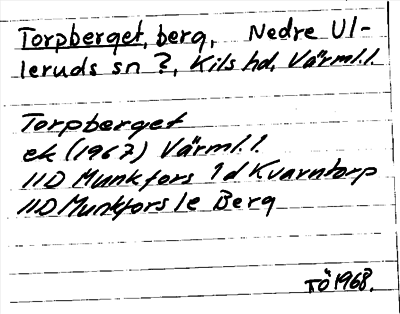 Torpberget, berg, Nedre Ul-
leruds sn ?, Kils hd, Värml. l.
Torpberget
ek (1967) Värml. l.
11D Munkfors 1d Kvarntorp
11D Munkfors 1e Berg
TÖ 1968.